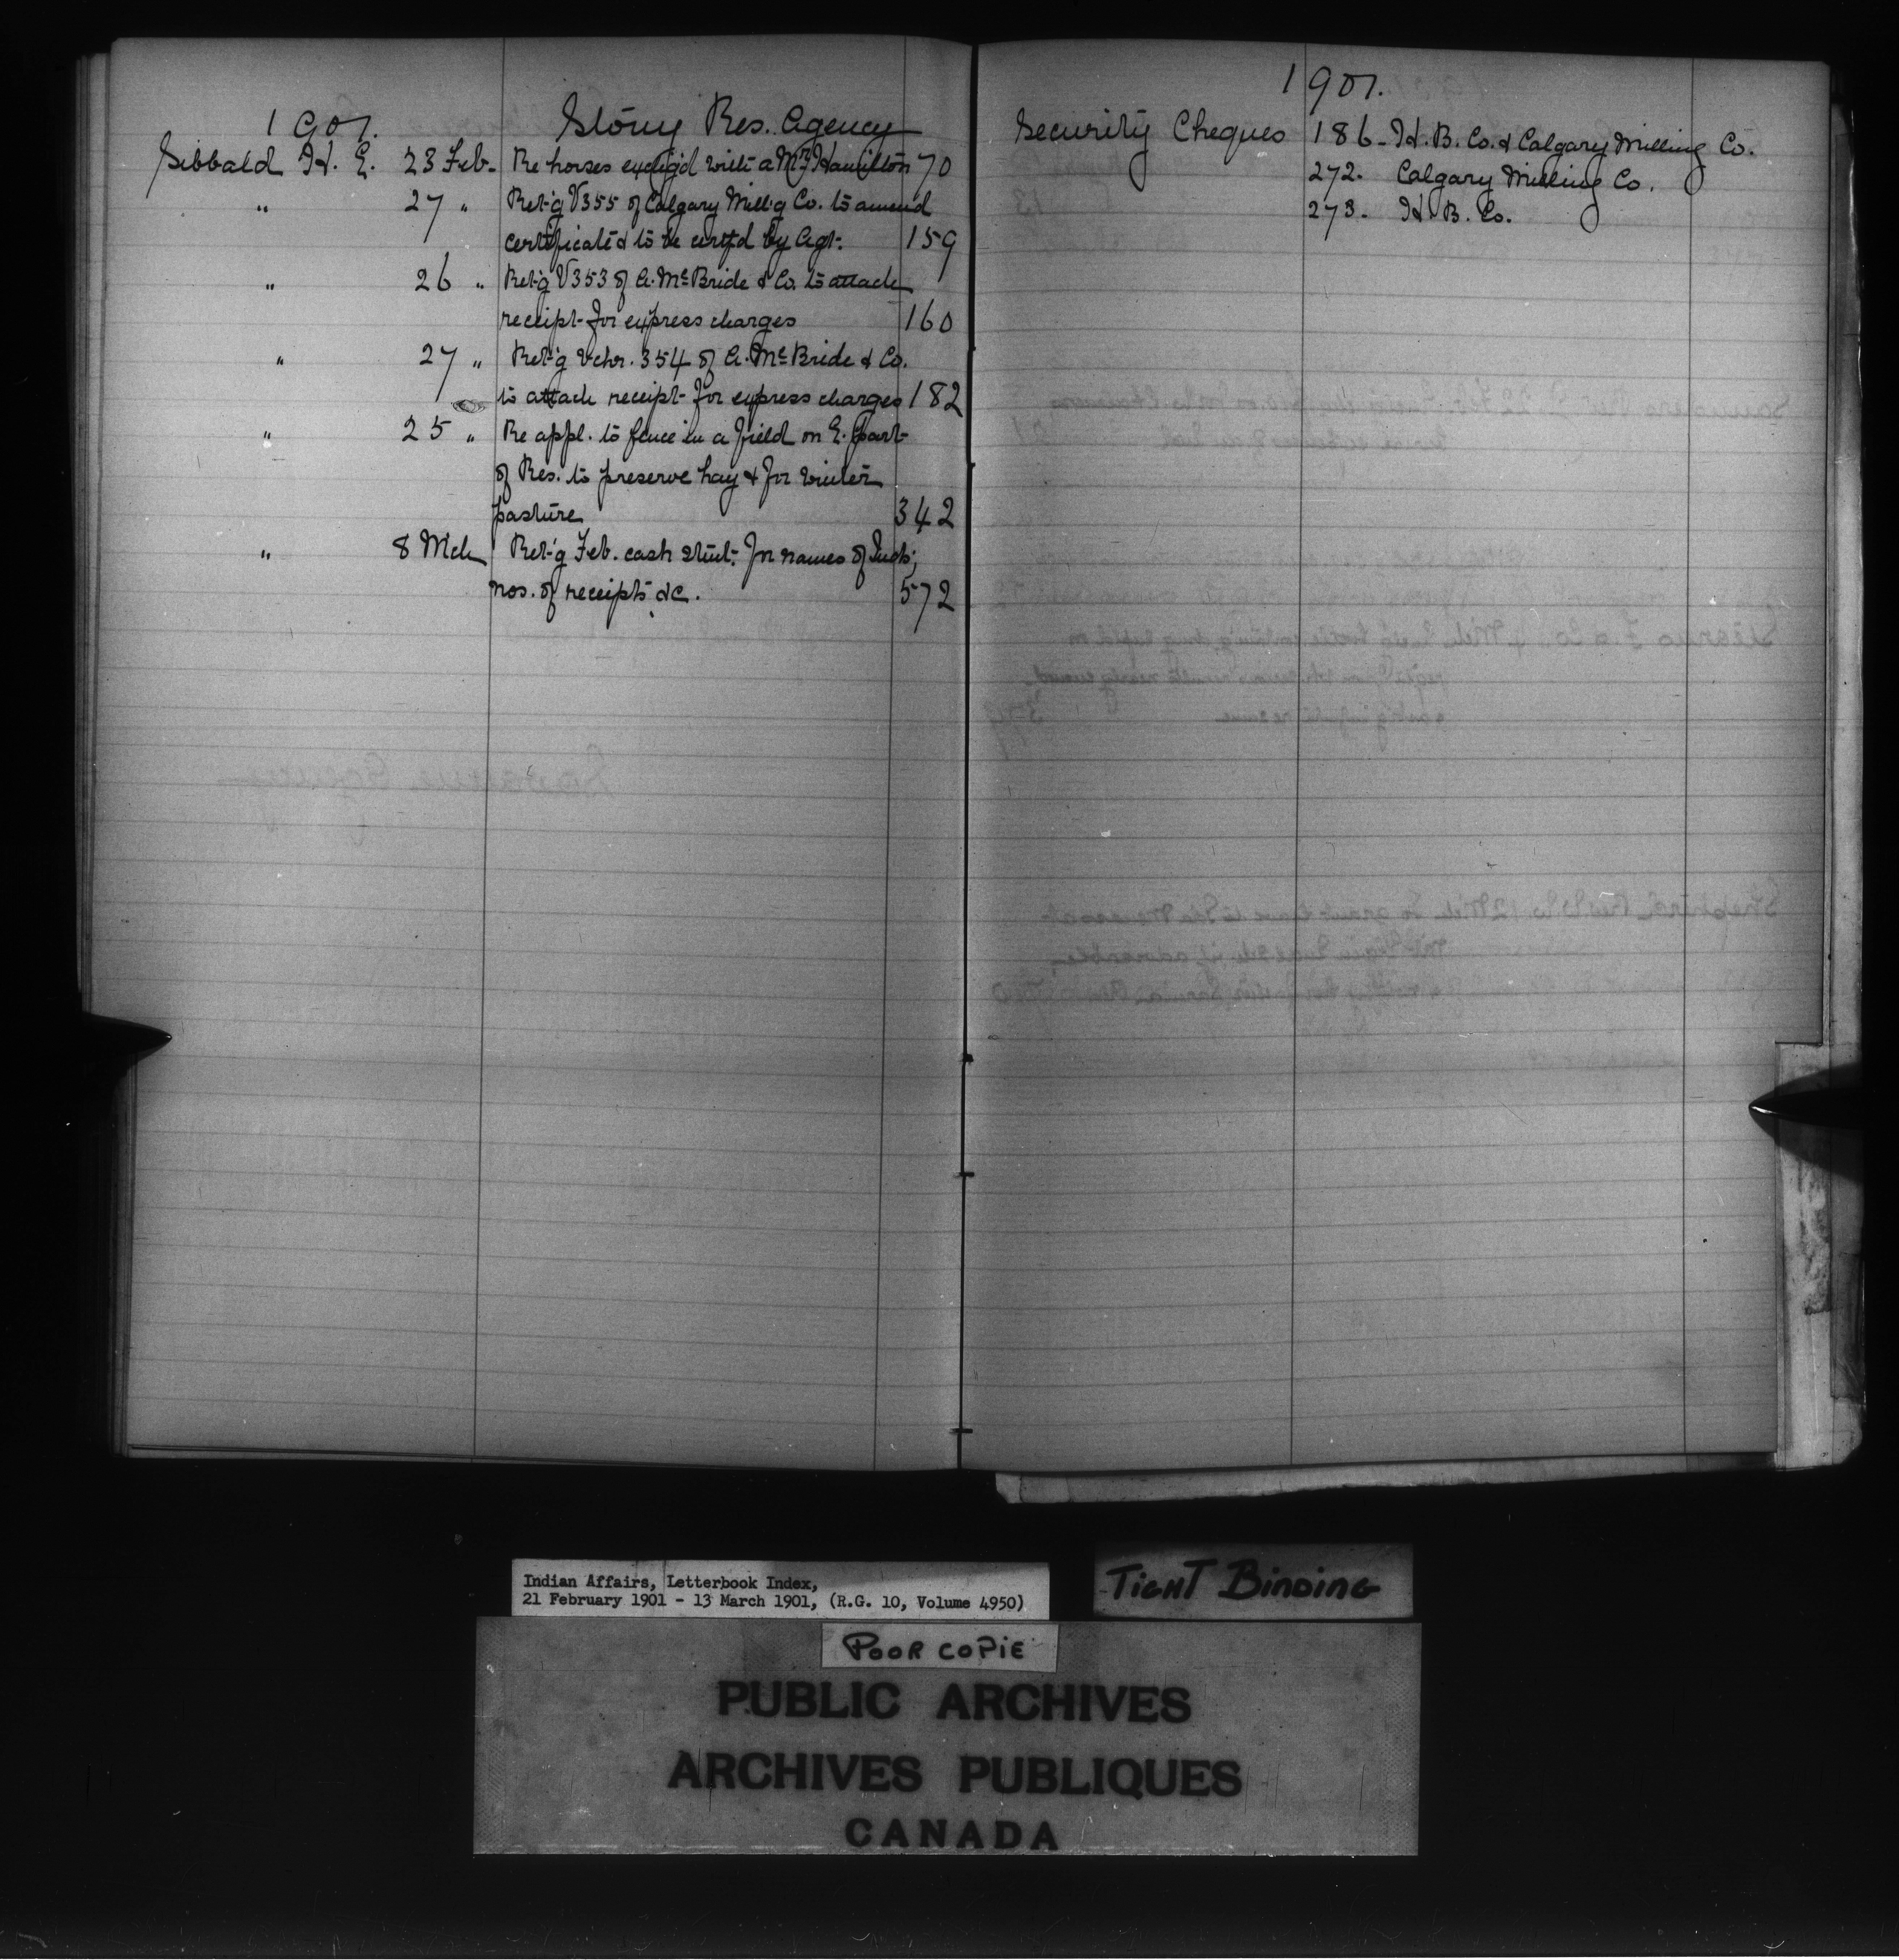 1901.
Stony Res. Agency
Sibbald H. E. 23 Feb. Re horses exchg'd with a Mr. Hamilton 70
" 27 " Ret'g V355 of Calgary Mill'g Co. to amend
certificate & to be certf'd by Agt. 159
" 26 " Ret'g V353 of A. McBride & Co. to attach
receipt for express charges 160
" 27 " Ret'g Vchr. 354 of A. McBride & Co.
to attach receipt for express charges 182
" 25 " Re appl. to fence in a field on E. part
of Res. to preserve hay & for winter
pasture 342
" 8 Mch Ret'g Feb. cash stmt. for names of Inds;
nos. of receipts &c. 572
1901.
Security Cheques 186 - H. B. Co. & Calgary Milling Co.
272. Calgary Milling Co.
273. H. B. Co.
Indian Affairs, Letterbook Index,
21 February 1901 - 13 March 1901, (R.G. 10, Volume 4950)
TIGHT BINDING
POOR COPIE
PUBLIC ARCHIVES
ARCHIVES PUBLIQUES
CANADA